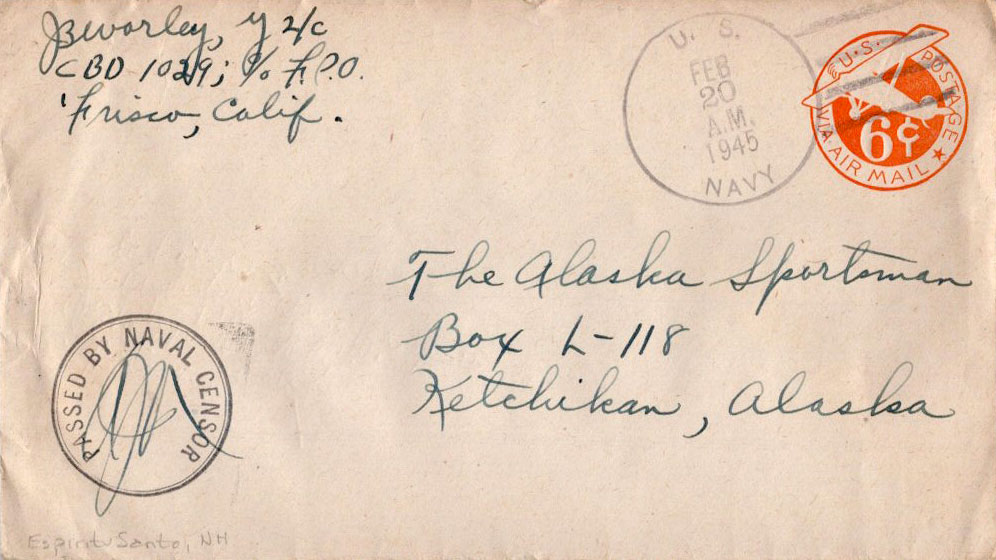 JBworley, Y 2/c
CBD 1029; c/o F.P.O.
'Frisco, Calif.
U. S.
FEB
20
A.M.
1945
NAVY
U·S· POSTAGE
6¢
VIA·AIR MAIL
The Alaska Sportsman
Box L-118
Ketchikan, Alaska
PASSED BY NAVAL CENSOR
Espiritu Santo, NH